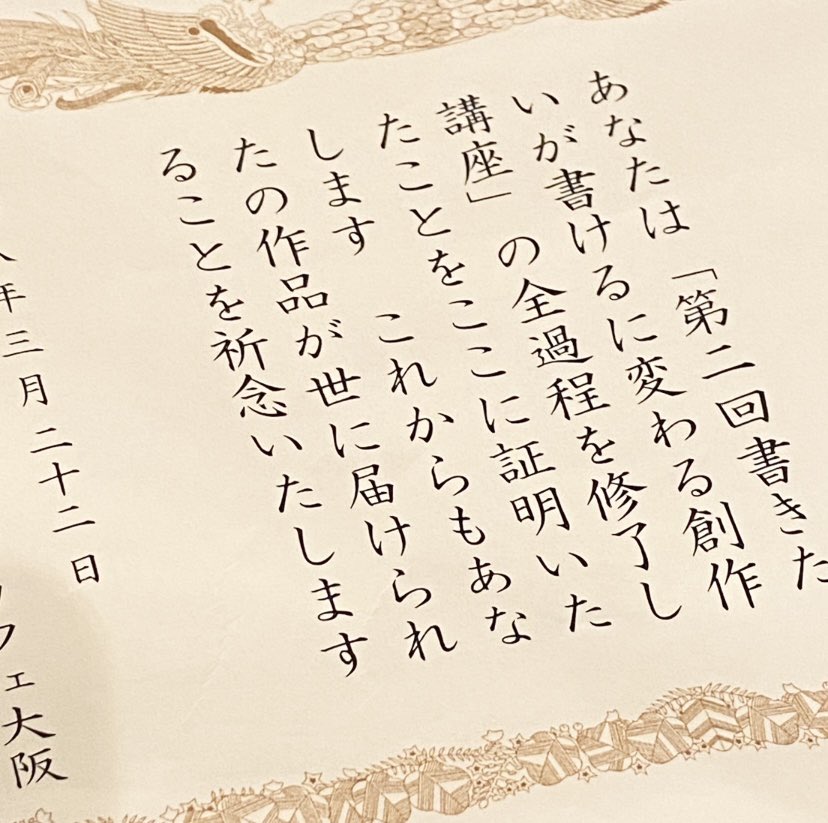 あなたは「第二回書きた
いが書けるに変わる創作
講座」の全過程を修了し
たことをここに証明いた
します　これからもあな
たの作品が世に届けられ
ることを祈念いたします
年三月二十二日
フェ大阪